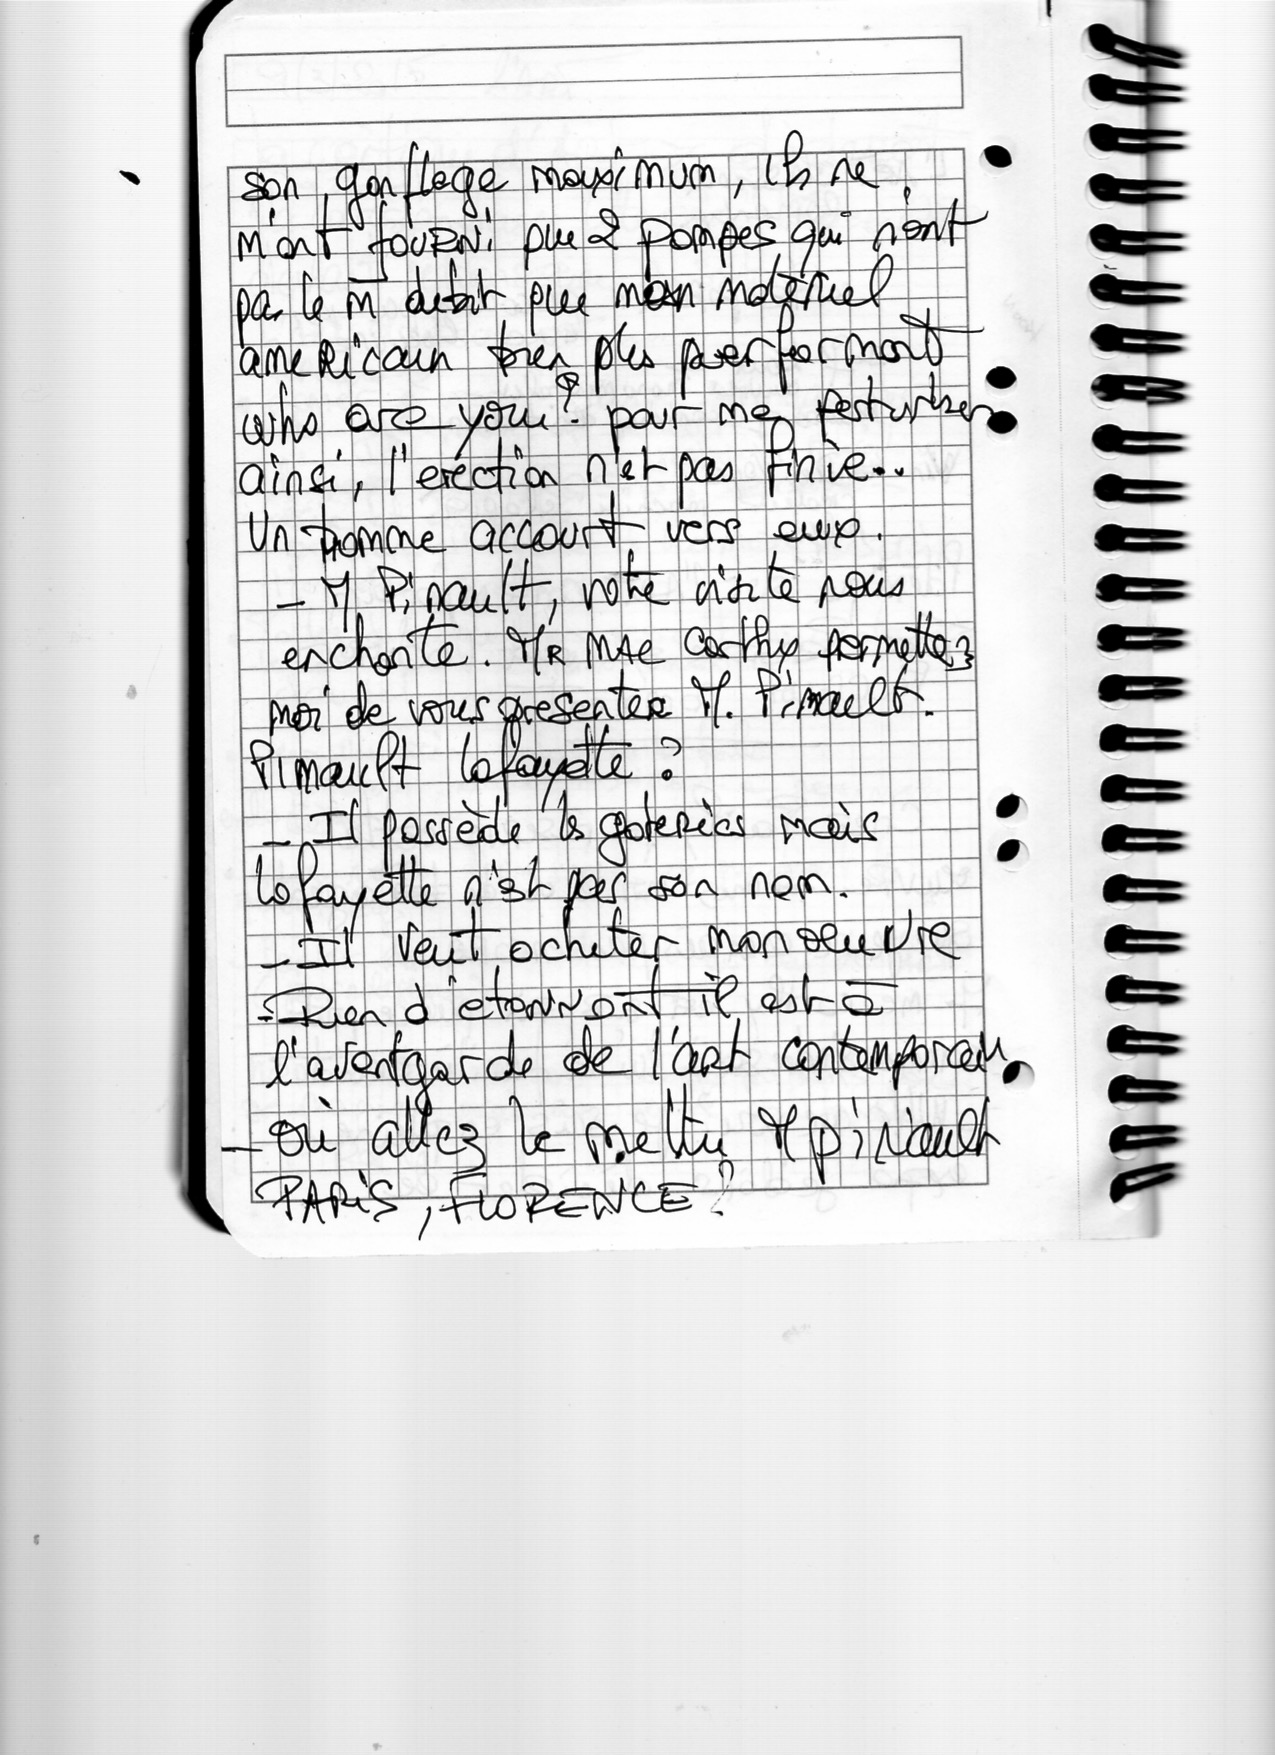 son gonflage maximum, ils ne
m'ont fourni que 2 pompes qui n'ont
pas le m̄ debit que mon matériel
americain bien plus performant
who are you? pour me perturber
ainsi, l'erection n'est pas finie...
Un homme accourt vers eux.
- M. Pinault, votre visite nous
enchante. MR MAC Carthy permettez
moi de vous presenter M. Pinault.
Pinault Lafayette ?
- Il possède les galeries mais
Lafayette n'est pas son nom.
- Il veut acheter mon oeuvre
- Rien d'étonnant il est à
l'avantgarde de l'art contemporain.
- où allez le mettre M pinault
PARIS, FLORENCE ?